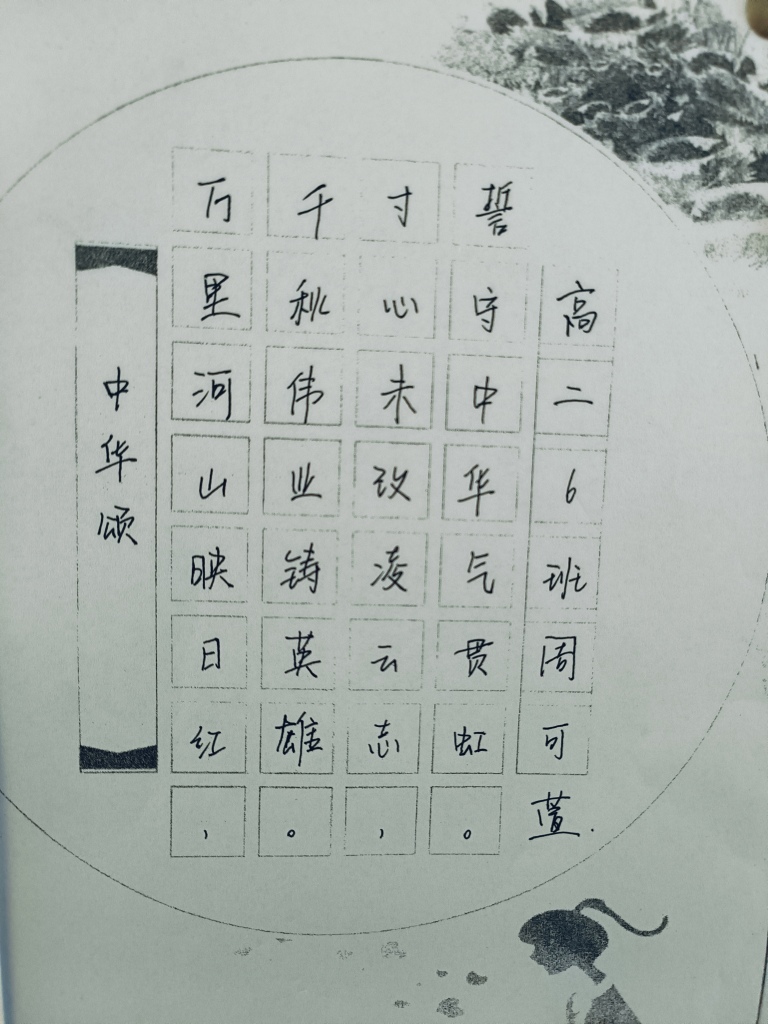 中华颂
万里河山映日红，
千秋伟业铸英雄。
寸心未改凌云志，
誓守中华气贯虹。
高二6班周可萱.